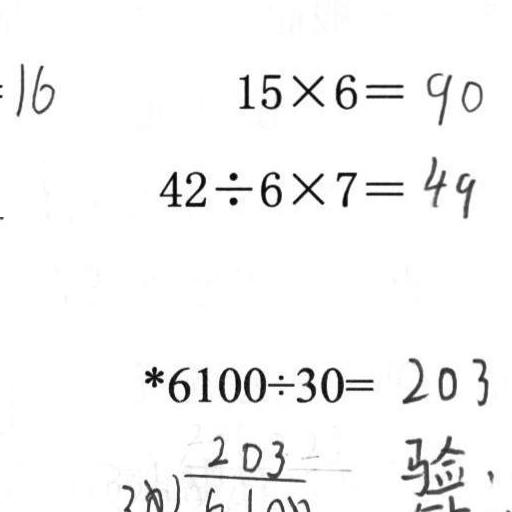 =16
15×6=90
42÷6×7=49
*6100÷30=203
203
30)6100
验: